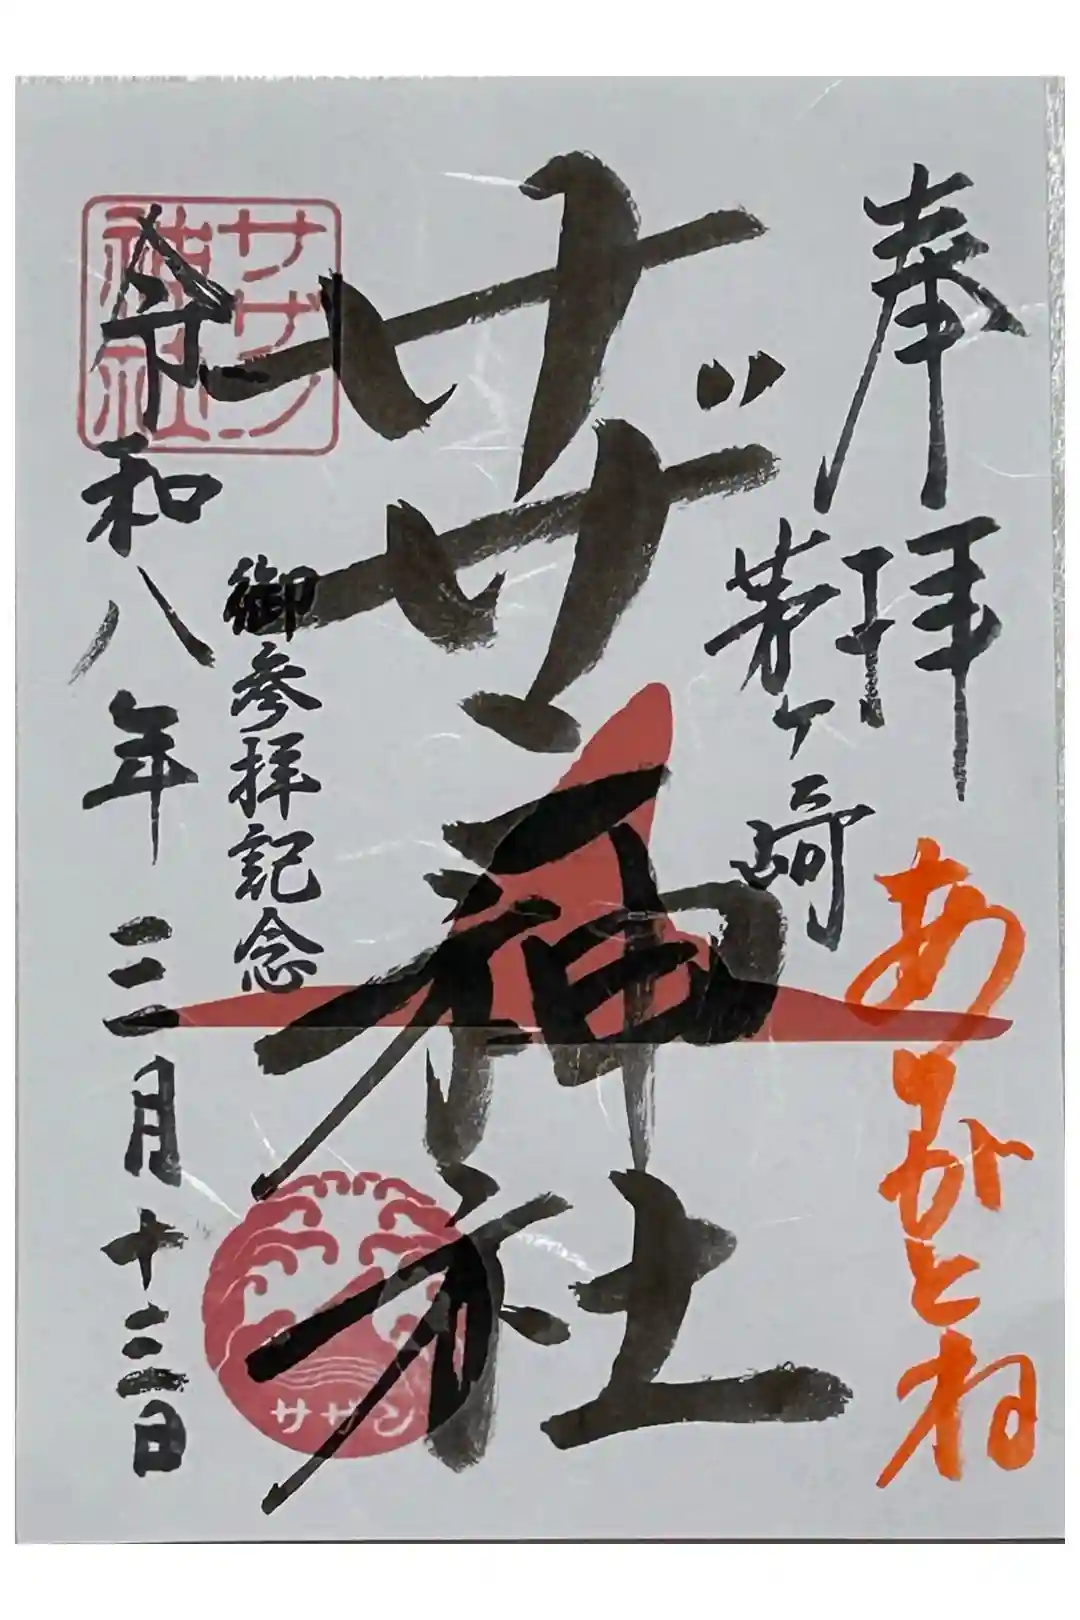 奉拝
ありがとね
茅ヶ崎
サザン神社
御参拝記念
令和八年三月十三日
サザン
神社
サザン